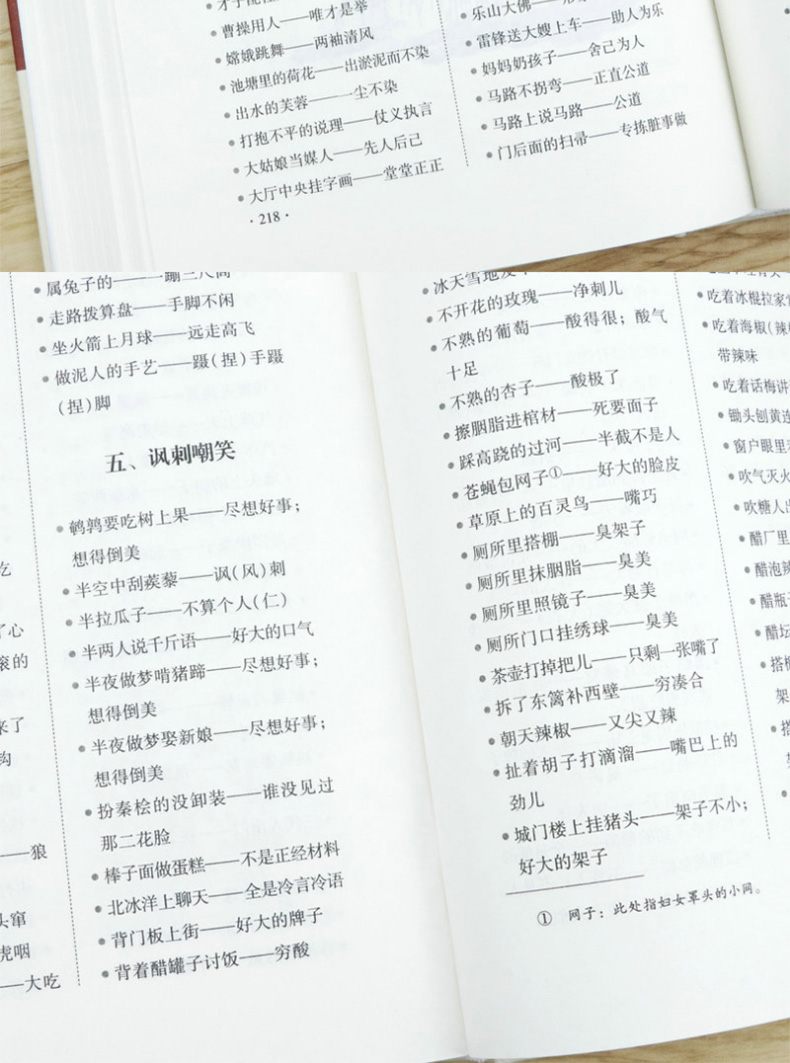 曹操用人——唯才是举
嫦娥跳舞——两袖清风
池塘里的荷花——出淤泥而不染
出水的芙蓉——一尘不染
打抱不平的说理——仗义执言
大姑娘当媒人——先人后己
大厅中央挂字画——堂堂正正
·218·
乐山大佛——
雷锋送大嫂上车——助人为乐
妈妈奶孩子——舍己为人
马路不拐弯——正直公道
马路上说马路——公道
门后面的扫帚——专拣脏事做
属兔子的——一蹦三尺高
走路拨算盘——手脚不闲
坐火箭上月球——远走高飞
做泥人的手艺——蹑(捏)手蹑
(捏)脚
五、讽刺嘲笑
鹌鹑要吃树上果——尽想好事；
想得倒美
半空中刮蒺藜——讽(风)刺
半拉瓜子——不算个人(仁)
半两人说千斤语——好大的口气
半夜做梦啃猪蹄——尽想好事；
想得倒美
半夜做梦娶新娘——尽想好事；
想得倒美
扮秦桧的没卸装——谁没见过
那二花脸
棒子面做蛋糕——不是正经材料
北冰洋上聊天——全是冷言冷语
背门板上街——好大的牌子
背着醋罐子讨饭——穷酸
吃
了心
滚的
来了
钩
——狼
头窜
虎咽
——大吃
冰天雪地发
不开花的玫瑰——净刺儿
不熟的葡萄——酸得很；酸气
十足
不熟的杏子——酸极了
擦胭脂进棺材——死要面子
踩高跷的过河——半截不是人
苍蝇包网子①——好大的脸皮
草原上的百灵鸟——嘴巧
厕所里搭棚——臭架子
厕所里抹胭脂——臭美
厕所里照镜子——臭美
厕所门口挂绣球——臭美
茶壶打掉把儿——只剩一张嘴了
拆了东篱补西壁——穷凑合
朝天辣椒——又尖又辣
扯着胡子打滴溜——嘴巴上的
劲儿
城门楼上挂猪头——架子不小；
好大的架子
① 网子：此处指妇女罩头的小网。
吃着冰棍拉家常
吃着海椒(辣
带辣味
吃着话梅讲
锄头刨黄连
窗户眼里
吹气灭火
吹糖人出
醋厂里
醋泡辣
醋瓶子
醋坛
搭棚
架
搭